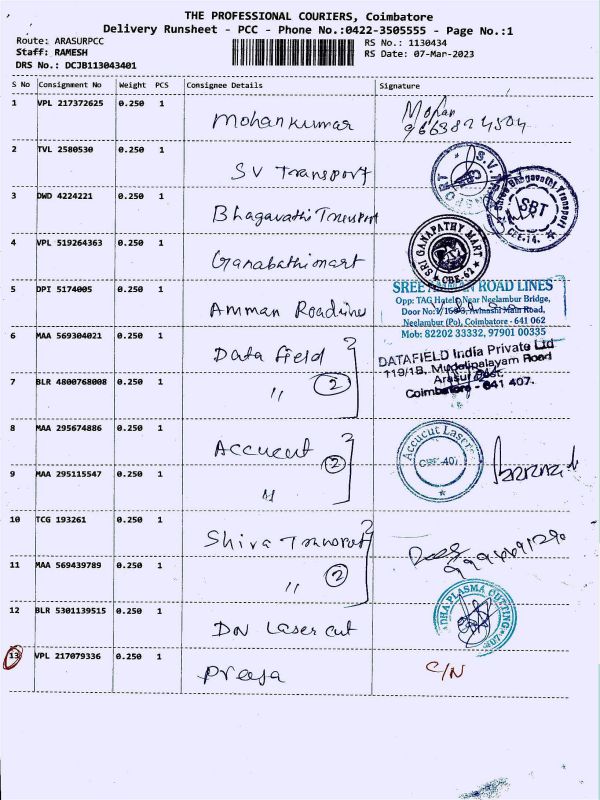 THE PROFESSIONAL COURIERS, Coimbatore
Delivery Runsheet - PCC - Phone No.:0422-3505555 - Page No.:1
Route: ARASURPCC
RS No.: 1130434
Staff: RAMESH
RS Date: 07-Mar-2023
DRS No.: DCJB113043401
S No Consignment No Weight PCS Consignee Details Signature
1 VPL 217372625 0.250 1 Mohankumar Mohan
2 TVL 2580530 0.250 1 SV Transport
S.V. TRANSPORT
3 DWD 4224221 0.250 1 Bhagavathi Transport
Shree Bhagavathi Transport
SBT
CBE-14.
4 VPL 519264363 0.250 1 Ganabathi mart
SRI GANAPATHY MART
CBE-62
5 DPI 5174005 0.250 1 Amman Roadline
SREE AMMAN ROAD LINES
Opp: TAG Hotel, Near Neelambur Bridge,
Door No: Avinashi Main Road,
Neelambur (Po), Coimbatore - 641 062
Mob: 82202 33332, 97901 00335
6 MAA 569304021 0.250 1 Data field
DATAFIELD India Private Ltd
119/1B, Mudalipalayam Road
Arasur Post,
Coimbatore - 641 407.
7 BLR 4800768008 0.250 1 " 2
8 MAA 295674886 0.250 1 Accucut 2
Accucut Lasers
CBE-407
9 MAA 295115547 0.250 1 "
10 TCG 193261 0.250 1 Shiva Transport
11 MAA 569439789 0.250 1 " 2
12 BLR 5301139515 0.250 1 DN Laser cut
PLASMA CUTTING
13 VPL 217079336 0.250 1 Preeja C/N